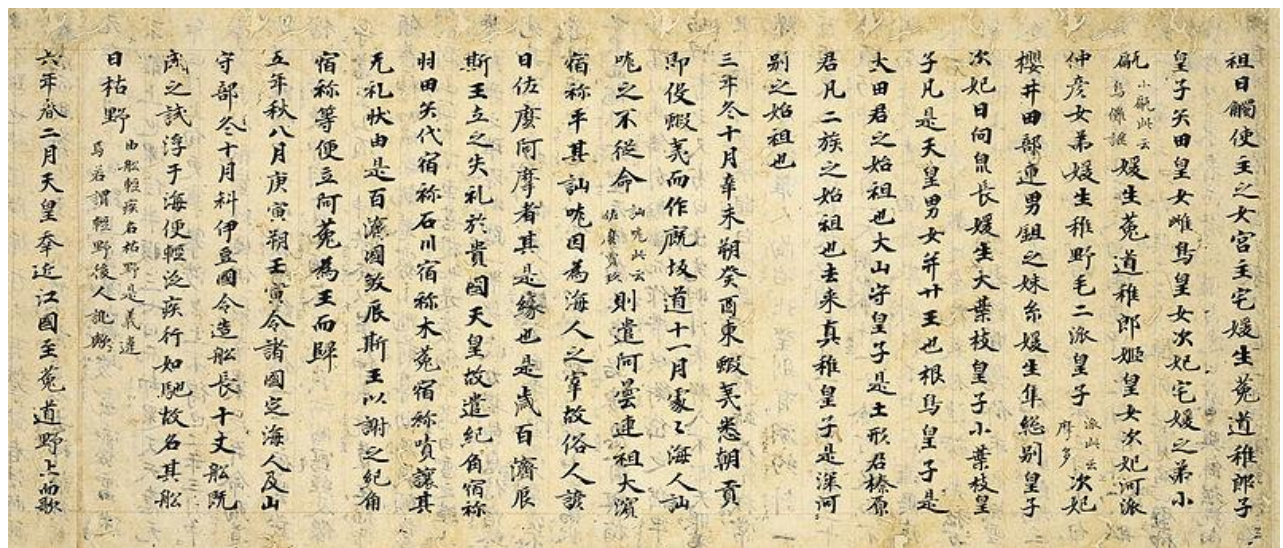 祖日觸使主之女宮主宅媛生菟道稚郎子
皇子矢田皇女雌鳥皇女次妃宅媛之弟小
甂小甂此云烏儺謎媛生菟道稚郎姬皇女次妃河派
仲彦女弟媛生稚野毛二派皇子派此云麻多次妃
櫻井田部連男鉏之妹糸媛生隼総別皇子
次妃日向泉長媛生大葉枝皇子小葉枝皇
子凡是天皇男女并廿王也根鳥皇子是
大田君之始祖也大山守皇子是土形君榛原
君凡二族之始祖也去来真稚皇子是深河
別之始祖也
三年冬十月辛未朔癸酉東蝦夷悉朝貢
即役蝦夷而作厩坂道十一月處々海人訕
哤之不從命訕哤此云佐麼賣玖則遣阿曇連祖大濱
宿祢平其訕哤因為海人之宰故俗人諺
曰佐麼阿摩者其是縁也是歳百濟辰
斯王立之失礼於貴國天皇故遣紀角宿祢
羽田矢代宿祢石川宿祢木菟宿祢嘖讓其
无礼状由是百濟國煞辰斯王以謝之紀角
宿祢等便立阿菟為王而歸
五年秋八月庚寅朔壬寅令諸國定海人及山
守部冬十月科伊豆國令造舩長十丈舩既
成之試浮于海便輕泛疾行如馳故名其舩
曰枯野由舩輕疾名枯野是義違焉若謂輕野後人訛歟
六年春二月天皇幸近江國至菟道野上而歌